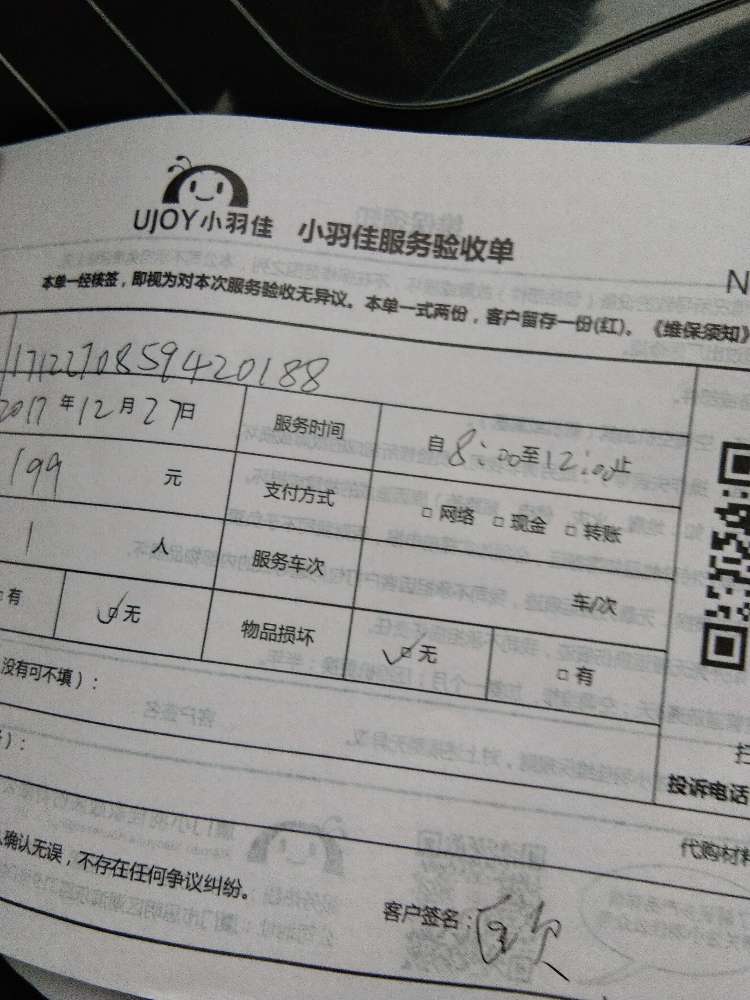 UJOY小羽佳 小羽佳服务验收单
N
本单一经核签，即视为对本次服务验收无异议。本单一式两份，客户留存一份(红)。《维保须知》
1712270859420188
2017年12月27日 服务时间 自8:00至12:00止
199 元 支付方式 □网络 □现金 □转账
1 人 服务车次 车/次
□有 □无 物品损坏 □无 □有
没有可不填）：
）：
投诉电话
代购材料
确认无误，不存在任何争议纠纷。
客户签名：